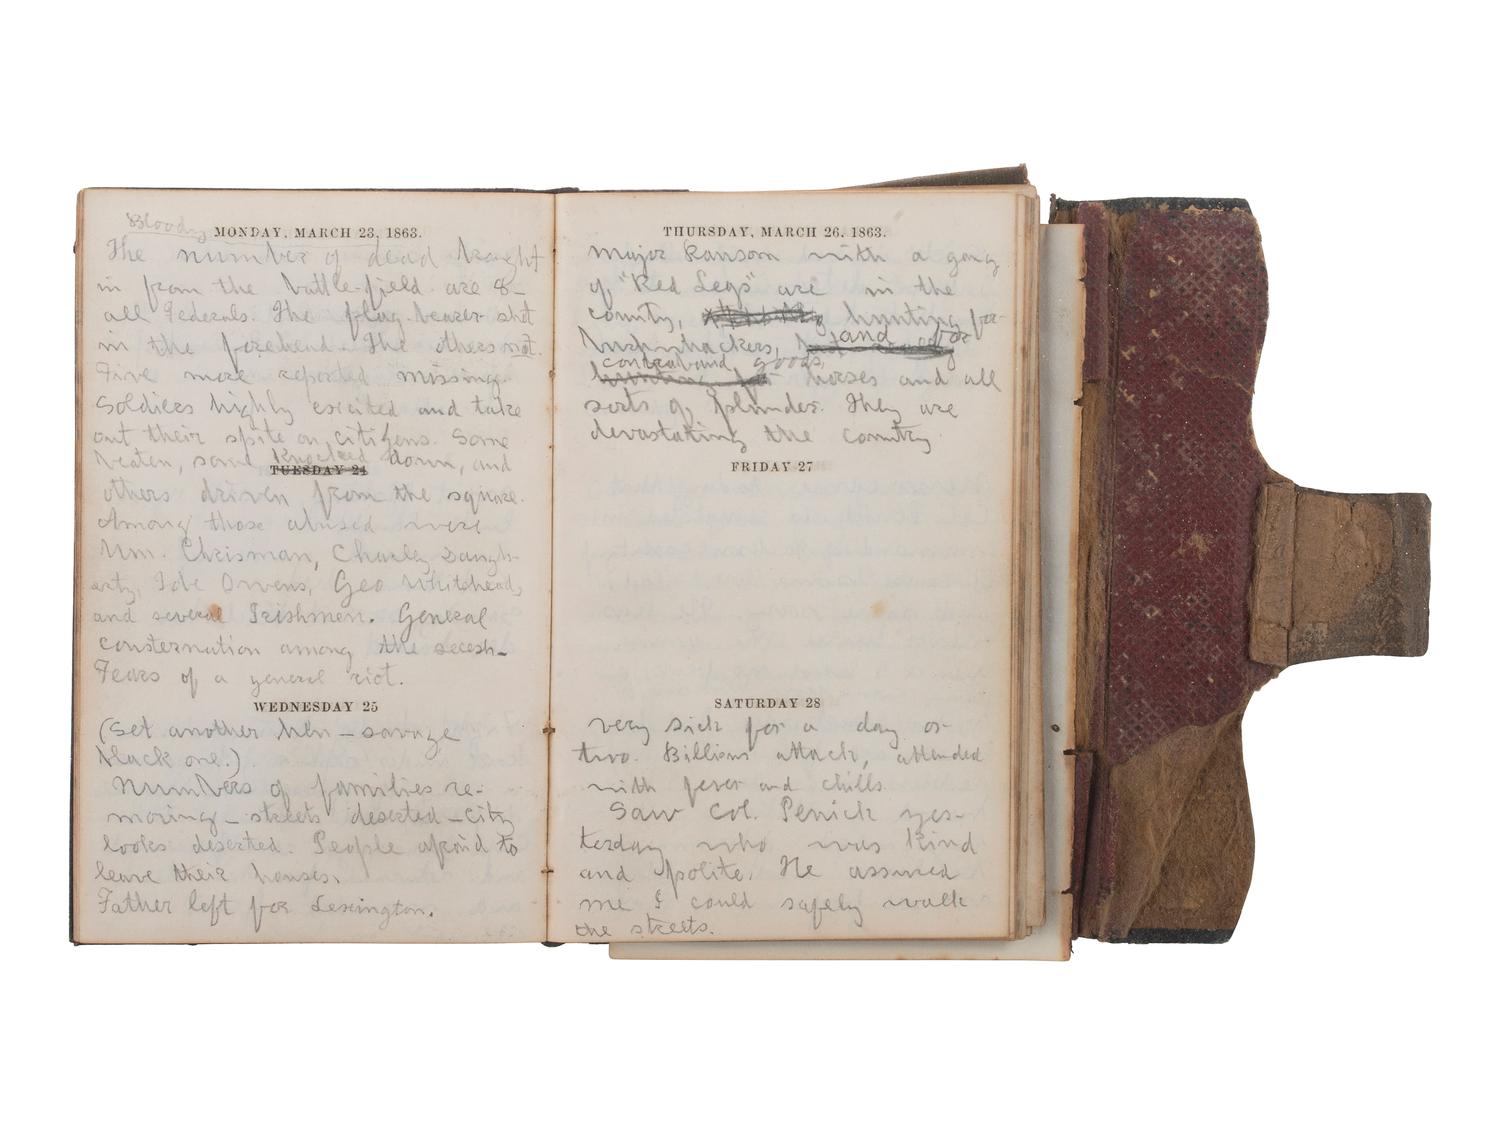 Bloody
MONDAY, MARCH 23, 1863.
The number of dead brought
in from the battle-field are 8 –
all Federals. The flag-bearer shot
in the forehead. The others not.
Five more reported missing.
Soldiers highly excited and take
out their spite on citizens. Some
beaten, some knocked down, and
TUESDAY 24
others driven from the square.
Among those abused were
Wm. Chrisman, Charley Daugh-
erty, Ide Owens, Geo Whitehead,
and several Irishmen. General
consternation among the secesh –
Fears of a general riot.
WEDNESDAY 25
(Set another hen – savage
black one.)
Numbers of families re-
moving – streets deserted – City
looks deserted. People afraid to
leave their houses.
Father left for Lexington.
THURSDAY, MARCH 26, 1863.
Major Ransom with a gang
of "Red Legs" are in the
county, hunting for
bushwhackers, and for
contraband goods,
hunting for horses and all
sorts of plunder. They are
devastating the country.
FRIDAY 27
SATURDAY 28
very sick for a day or
two. Billious attack, attended
with fever and chills
Saw Col. Penick yes-
terday who was kind
and polite. He assured
me I could safely walk
the streets.